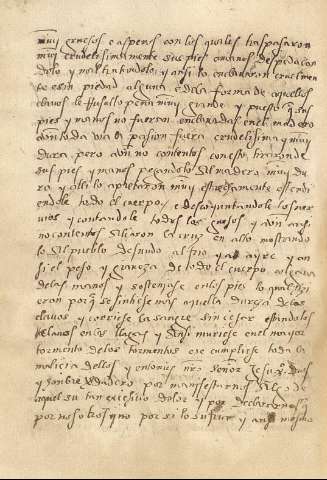 muy gruesos e asperos con los quales traspasaron
muy crudelissimamente sus pies e manos despedaçan
dolo y maltratandolo y ansi lo enclavaron cruelmen
te e sin piedad alguna e de la forma de aquellos
clavos le puso pena muy grande y puesto q sus
pies y manos no fueran enclavadas en el madero
con toda via la pasion fuera crudelisima y muy
dura pero aun no contentos con esto
sus pies y manos pegandolo al madero muy du
ro y alli lo apretaron muy estrechamente estendi
endole todo el cuerpo e descoyuntandole los ner
vios y contandole todos los guesos y aun a esto
no contentos alçaron la cruz en alto mostrando
lo al pueblo desnudo al frio y al ayre y an
si el peso y grandeza de todo el cuerpo colgava
de las manos y sostenias e en los pies lo qual hizi
eron porq sintiese mas aquella dureza de los
clavos y corriese la sangre sin cesar estandoles
clavos en las llagas y ansi muriese en el mayor
tormento de los tormentos e se cumpliese toda la
malicia dellos y entonces nro señor Jesux dios
y honbre verdadero por manifestarnos algo de
aquel su tan excesivo dolor y por declararnos q
por nosotros y no por si lo sufria y ansi mesmo